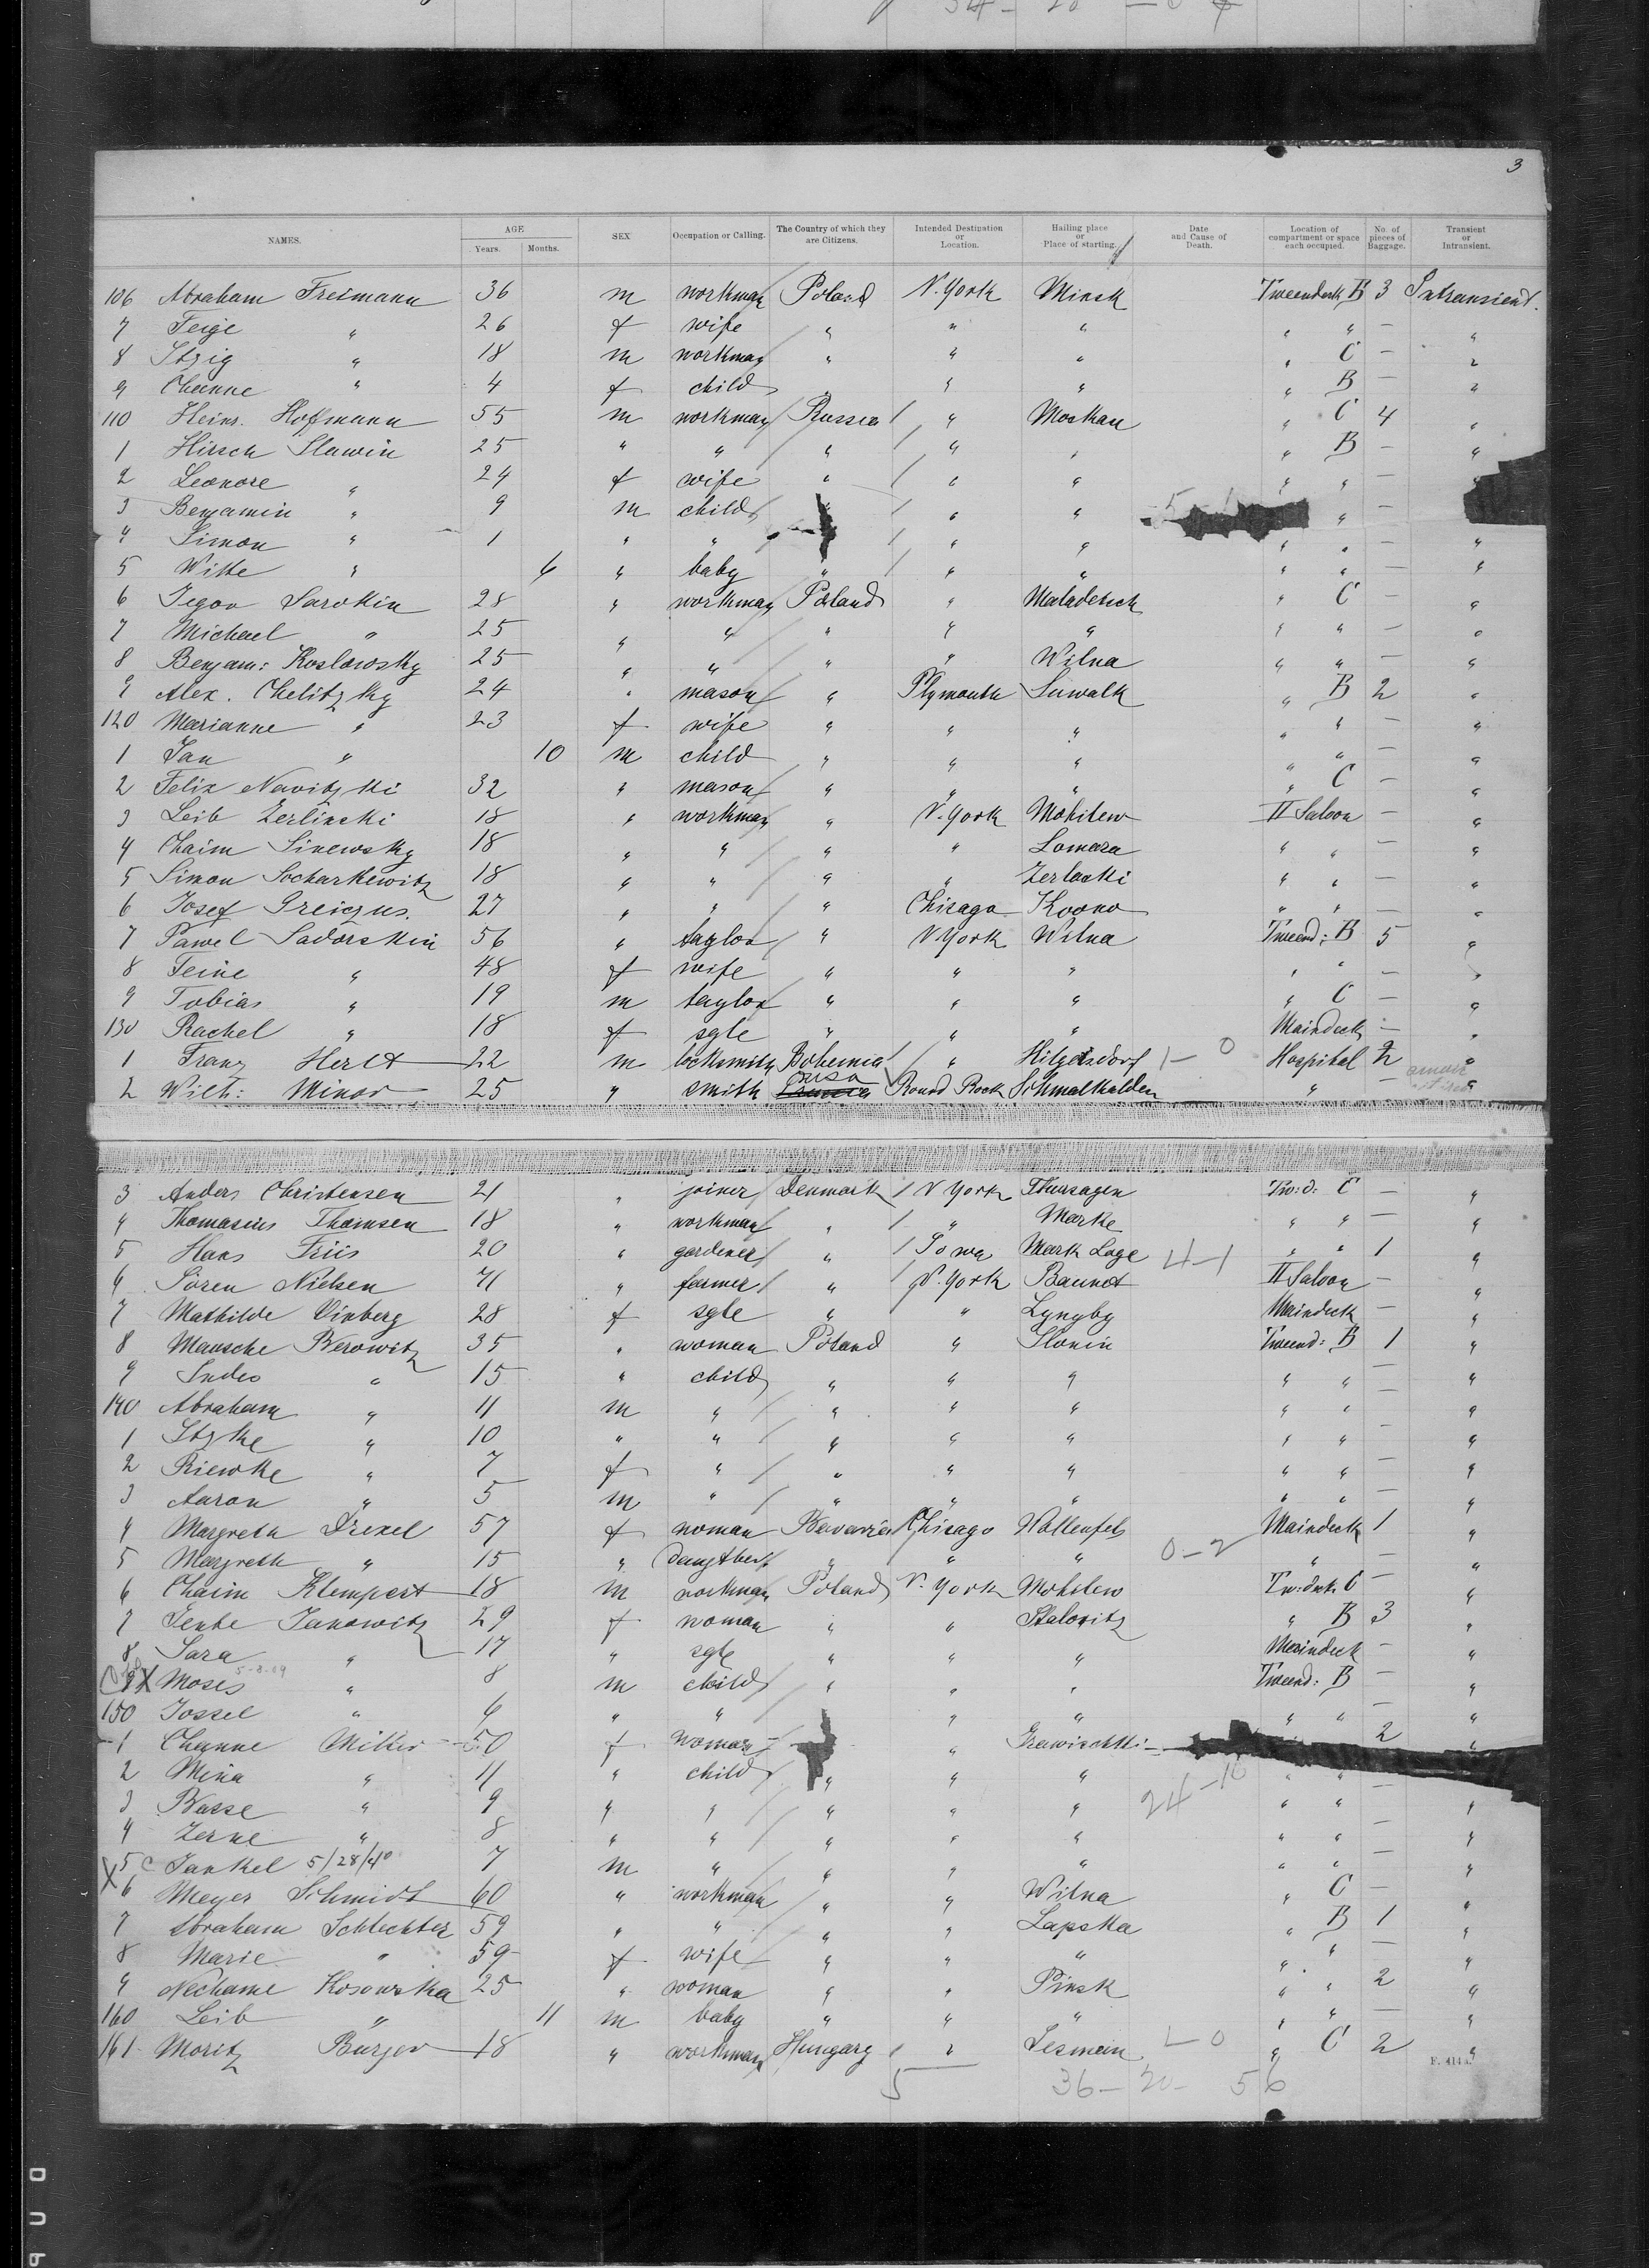 34 - 20
3
NAMES. AGE Years. Months. SEX Occupation or Calling. The Country of which they are Citizens. Intended Destination or Location. Hailing place or Place of starting. Date and Cause of Death. Location of compartment or space each occupied. No. of pieces of Baggage. Transient or Intransient.
106 Abraham Freimann 36 m workman Poland N. York Minsk Tweendeck B 3 Intransient.
7 Feige " 26 f wife " " " " " — "
8 Itzig " 18 m workman " " " " C — "
9 Channe " 4 f child " " " " B — "
110 Heinr. Hoffmann 55 m workman Russia " Moskau " C 4 "
1 Hirsch Slawin 25 " " " " " " B — "
2 Leonore " 24 f wife " " " " " — "
3 Benjamin " 9 m child " " " —
4 Simon " 1 " " " " " " — "
5 Witte " 6 " baby " " " " " — "
6 Jegor Sarokin 28 " workman Poland " Maladetsch " C — "
7 Michael " 25 " " " " " " " — "
8 Benjam: Koslowsky 25 " " " " Wilna " " — "
9 Alex. Chelitzky 24 " mason " Plymouth Suwalk " B 2 "
120 Marianne " 23 f wife " " " " " — "
1 Jan " 10 m child " " " " " — "
2 Felix Navitzki 32 " mason " " " " C — "
3 Leib Zerlinski 18 " workman " N. York Mohilew II Saloon — "
4 Chaim Sinewsky 18 " " " " Lomara " " — "
5 Simon Socharkewitz 18 " " " " Zerlaski " " — "
6 Josef Greiczus. 27 " " " Chicago Koono " " — "
7 Pawel Sadorskin 56 " taylor " N York Wilna Tweend: B 5 "
8 Feine " 48 f wife " " " " " — "
9 Tobias " 19 m taylor " " " " C — "
130 Rachel " 18 f sgle " " " Maindeck — "
1 Franz Herlt 22 m locksmith Bohemia " Hilgetsdorf 1 — 0 Hospital 2 "
2 Wilh: Minor 25 " smith Round Rock Schmalkalden " — "
3 Anders Christensen 21 " joiner Denmark N York Thursagen Tw: d: C — "
4 Thomasius Thomsen 18 " workman " " Marke " " — "
5 Hans Friis 20 " gardener " Iowa Mark Loge 4-1 " " 1 "
6 Sören Nielsen 71 " farmer " N. York Baunot II Saloon — "
7 Mathilde Vinberg 28 f sgle " " Lyngby Maindeck — "
8 Mausche Berowitz 35 " woman Poland " Slonin Tweend: B 1 "
9 " 15 " child " " " " " — "
140 Abraham " 11 m " " " " " " — "
1 Itzke " 10 " " " " " " " — "
2 Riewke " 7 f " " " " " " — "
3 Aaron " 5 m " " " " " " — "
4 Margreth Drexel 57 f woman Bavaria Chicago Hollenfels Maindeck 1 "
5 Margreth " 15 " daugther " " " 0-2 " — "
6 Chaim Klempert 18 m workman Poland N. York Mohilew Tw: deck C — "
7 Jente Janowitz 29 f woman " " Stalovitz " B 3 "
8 Sara " 17 " sgle " " " Maindeck — "
9 X Moses " 8 m child " " " Tweend: B — "
150 Jossel " 6 " " " " " " — "
1 Channe Miller 50 f woman " 2
2 Mina " 11 " child " " " " " — "
3 Basse " 9 " " " " " 24-16 " " — "
4 Zerne " 8 " " " " " " " — "
X 5 c Jankel 5/28/40 7 m " " " " " " — "
6 Meyer Schmidt 60 " workman " " Wilna " C — "
7 Abraham Schlechter 59 " " " " Lapska " B 1 "
8 Marie " 59 f wife " " " " " — "
9 Nechame Kosowska 25 " woman " " Pinsk " " 2 "
160 Leib " 11 m baby " " " " " — "
161 Moritz Burger 18 " workman Hungary " 1-0 " C 2 "
F. 414a.
5 36 — 20 — 56